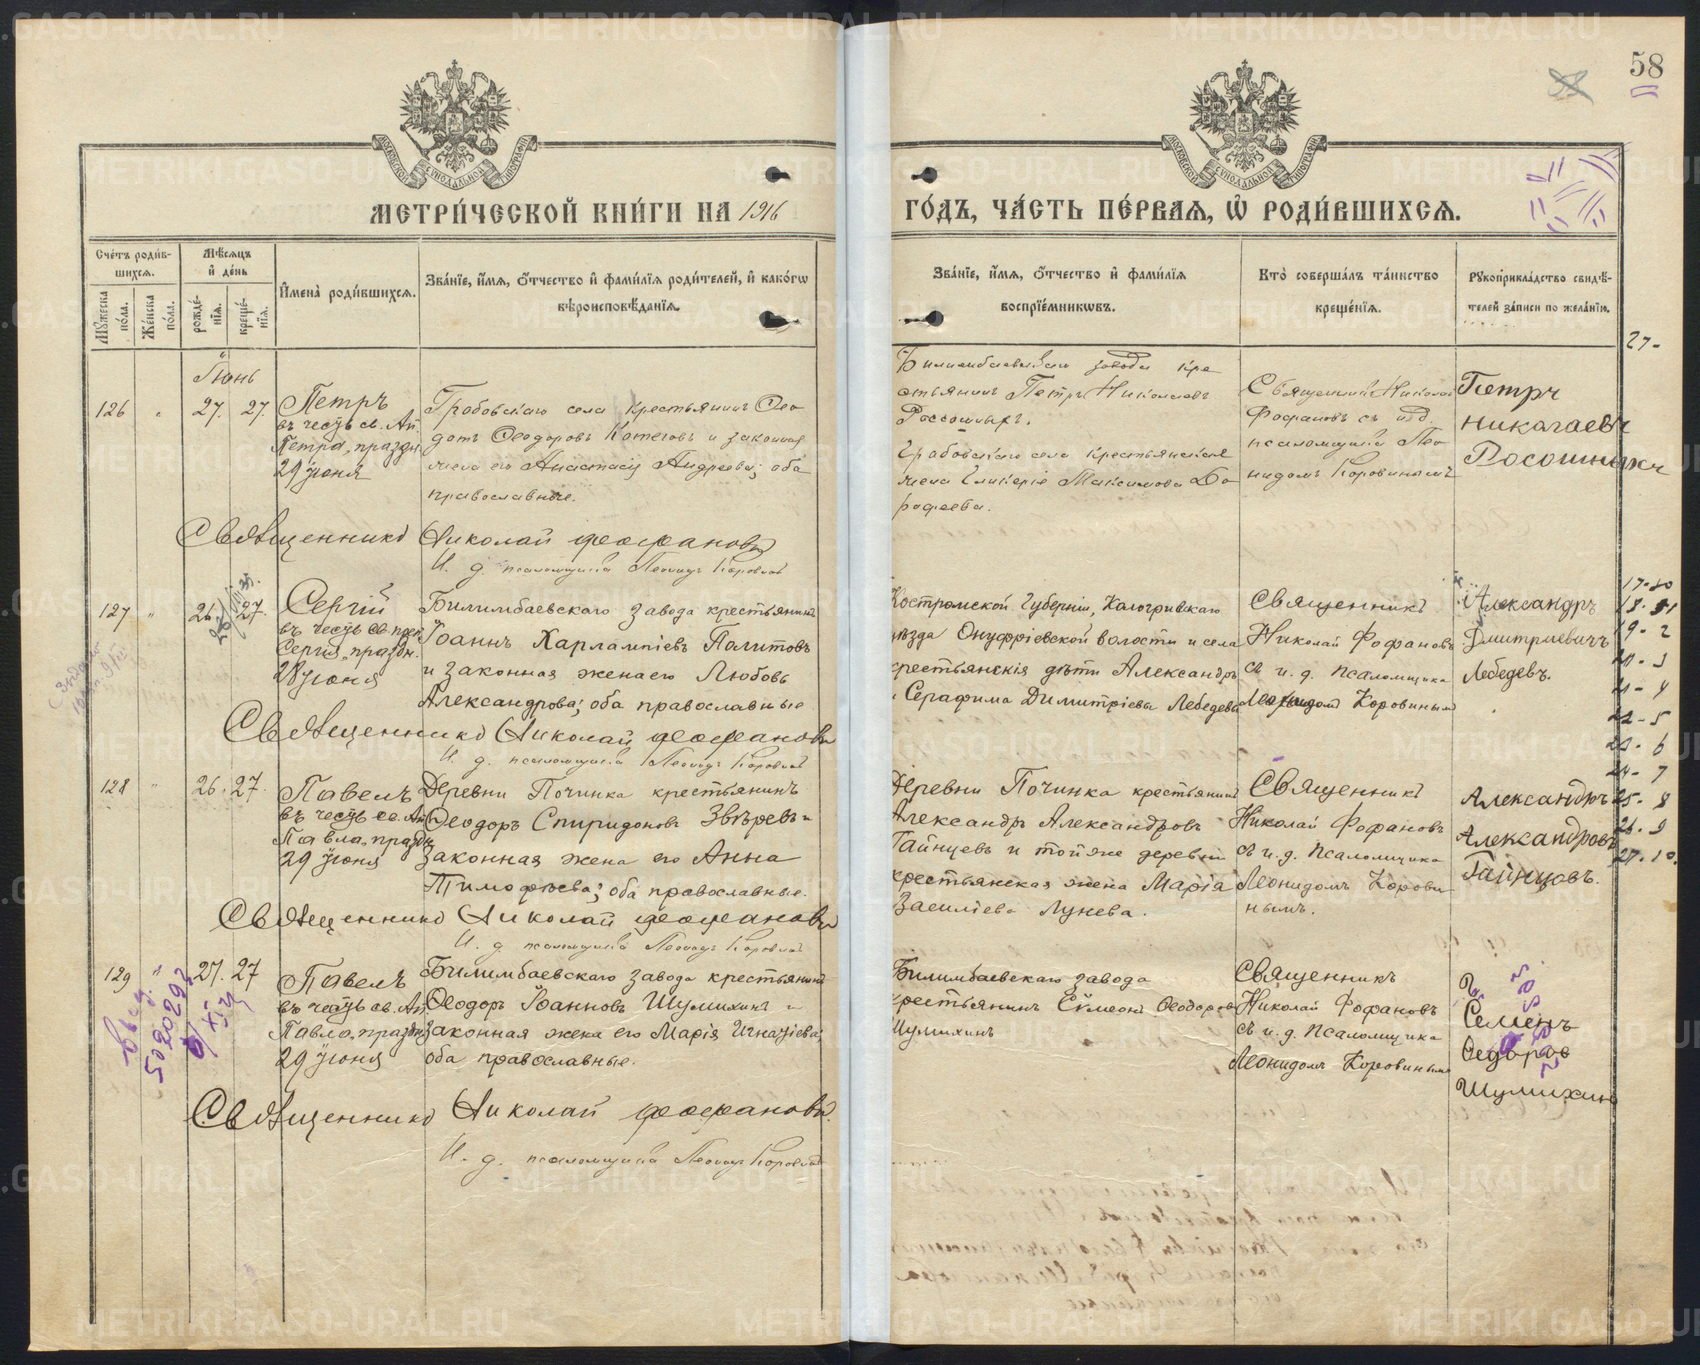 58
МЕТРИ́ЧЕСКОЙ КНИ́ГИ НА 1916
ГО́ДЪ, ЧА́СТЬ ПЕ́РВАЯ, Ѡ҆ РОДИ́ВШИХСЯ.
Сче́тъ роди́в-
шихся.
Мѣ́сяцъ
и҆ де́нь
Мꙋ́жеска по́ла.
Же́нска по́ла.
рожде́-
нїя.
креще́-
нїя.
И҆мена̀ роди́вшихся.
Зва́нїе, и҆́мя, ѻ҆́тчество и҆ фами́лїя роди́телей, и҆ како́гѡ
вѣроисповѣ́данїя.
Зва́нїе, и҆́мя, ѻ҆́тчество и҆ фами́лїя
воспрїе́мникѡвъ.
Кто̀ соверша́лъ та́инство
креще́нїя.
Рꙋкоприкла́дство свидѣ́-
телей за́писи по жела́нїю.
Іюнь
126 " 27. 27.
Петръ
въ честь св. Ап.
Петра, праздн.
29 іюня
Гробовскаго села крестьянинъ Ѳео
дотъ Ѳеодоровъ Котеговъ и законная
жена его Анастасія Андреева; оба
православные.
Билимбаевскаго завода кре
стьянинъ Петръ Николаевъ
Россошныхъ.
Гробовскаго села крестьянская
жена Гликерія Максимова До
рофеева.
Священникъ Николай
Фофановъ съ и. д.
псаломщика Лео
нидомъ Коровинымъ
Петръ
Николаевъ
Росошныхъ
Священникъ Николай Фофановъ
И. д. псаломщика Леонидъ Коровинъ
127 " 26. 27.
Сергій
въ честь св. преп.
Сергія, праздн.
28 іюня
Билимбаевскаго завода крестьянинъ
Іоаннъ Харлампіевъ Политовъ
и законная жена его Любовь
Александрова; оба православные
Костромской губерніи, Кологривскаго
уѣзда Онуфріевской волости и села
крестьянскія дѣти Александръ
и Серафима Димитріевы Лебедевы
Священникъ
Николай Фофановъ
съ и. д. псаломщика
Леонидомъ Коровинымъ
Александръ
Дмитриевичъ
Лебедевъ.
Священникъ Николай Фофановъ
И. д. псаломщика Леонидъ Коровинъ
128 " 26. 27.
Павелъ
въ честь св. Ап.
Павла, праздн.
29 іюня
Деревни Починка крестьянинъ
Ѳеодоръ Спиридоновъ Звѣревъ и
законная жена его Анна
Тимофѣева; оба православные.
Деревни Починка крестьянинъ
Александръ Александровъ
Гайнцевъ и тойже деревни
крестьянская жена Марія
Василіева Лунева.
Священникъ
Николай Фофановъ
съ и. д. псаломщика
Леонидомъ Корови
нымъ.
Александръ
Александровъ
Гайнцовъ.
Священникъ Николай Фофановъ
И. д. псаломщика Леонидъ Коровинъ
129 " 27. 27
Павелъ
въ честь св. Ап.
Павла, праздн.
29 іюня
Билимбаевскаго завода крестьянинъ
Ѳеодоръ Іоанновъ Шумихинъ и
законная жена его Марія Игнатіева;
оба православные.
Билимбаевскаго завода
крестьянинъ Сѵмеонъ Ѳеодоровъ
Шумихинъ
Священникъ
Николай Фофановъ
съ и. д. псаломщика
Леонидомъ Коровинымъ
Семенъ
Федоров
Шумихинъ
Священникъ Николай Фофановъ.
И. д. псаломщика Леонидъ Коровинъ
27-
17-
18-
19- 2
20- 3
21- 4
22- 5
23- 6
24- 7
25- 8
26- 9
27. 10.
METRIKI.GASO-URAL.RU